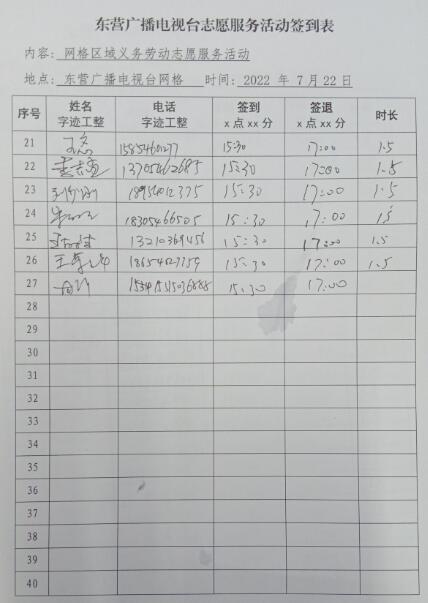 东营广播电视台志愿服务活动签到表
内容：网格区域义务劳动志愿服务活动
地点：东营广播电视台网格 时间：2022 年 7 月 22 日
序号 姓名 字迹工整 电话 字迹工整 签到 x 点 xx 分 签退 x 点 xx 分 时长
21 15:30 17:00 1.5
22 13705462685 15:30 17:00 1.5
23 18954012375 15:30 17:00 1.5
24 18305466505 15:30 17:00 1.5
25 13210369456 15:30 17:00 1.5
26 18654627759 15:30 17:00 1.5
27 15:30 17:00
28
29
30
31
32
33
34
35
36
37
38
39
40